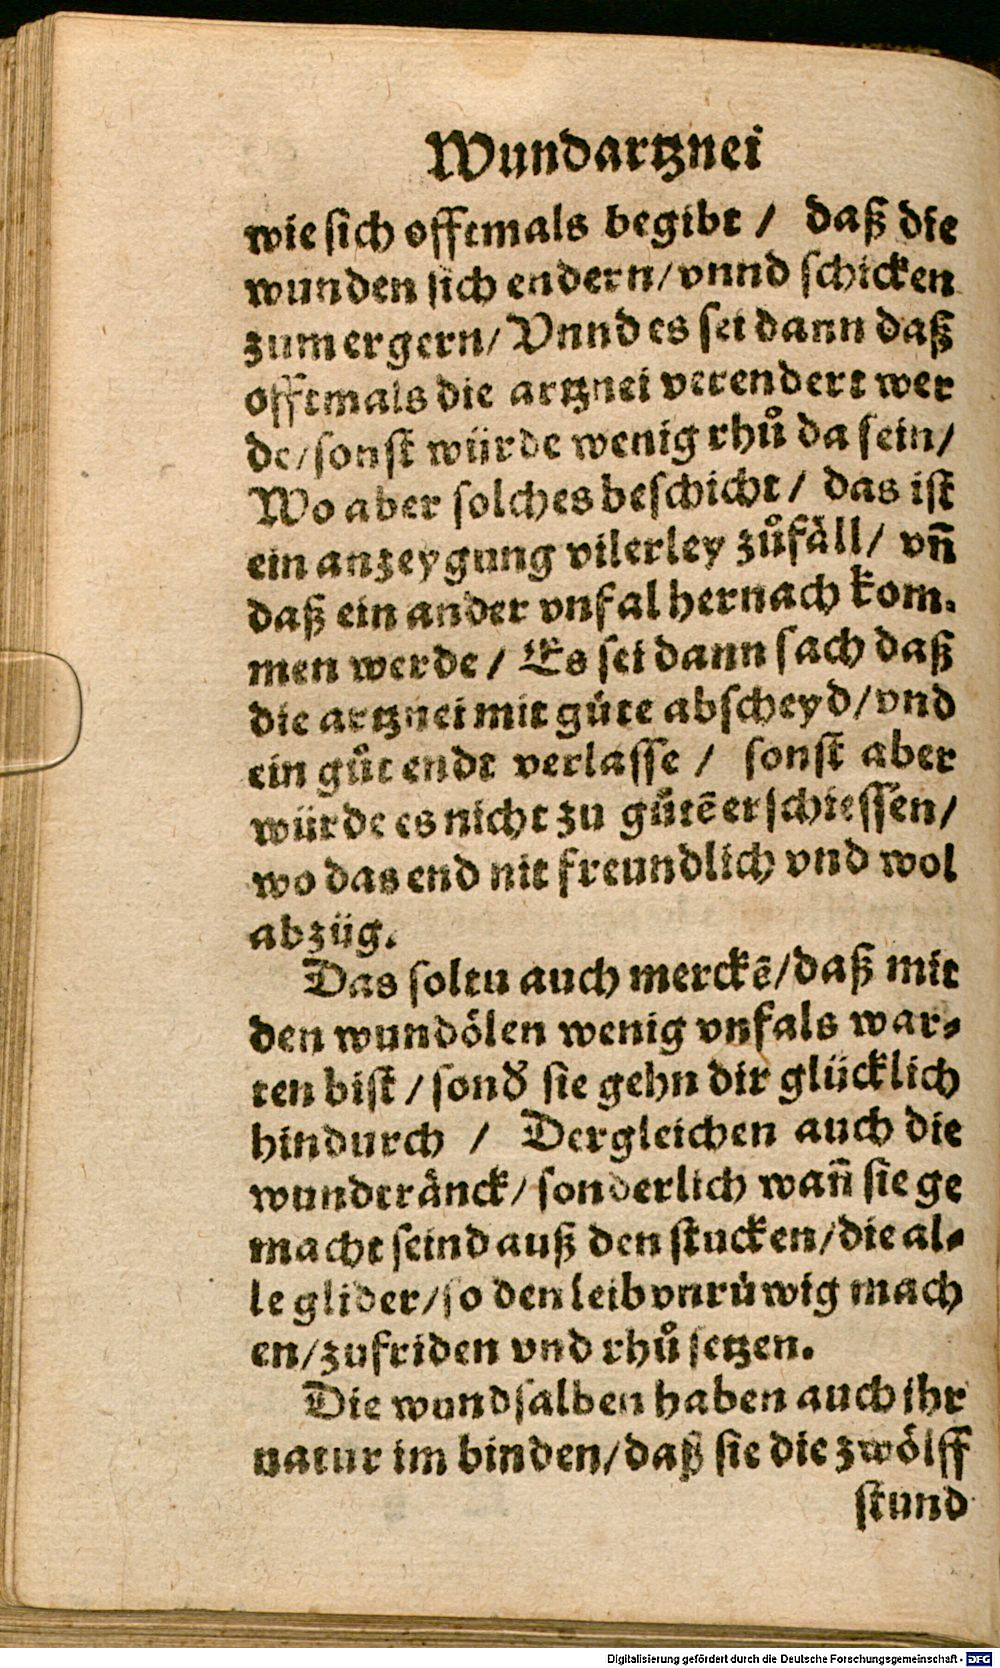 Wundartznei
wie sich offtmals begibt / daß die
wunden sich endern/vnnd schicken
zum ergern/ Vnnd es sei dann daß
offtmals die artznei verendert wer
de/sonst würde wenig rhů da sein/
Wo aber solches beschicht / das ist
ein anzeygung vilerley zůfäll/ vñ
daß ein ander vnfal hernach kom.
men werde / Es sei dann sach daß
die artznei mit güte abscheyd/vnd
ein gůt endt verlasse / sonst aber
würde es nicht zu gůtē erschiessen/
wo das end nit freundlich vnd wol
abzüg.
Das soltu auch merckē/daß mit
den wundölen wenig vnfals war⸗
ten bist / sond̕ sie gehn dir glücklich
hindurch / Dergleichen auch die
wundtränck/sonderlich wañ sie ge
macht seind auß den stucken/die al⸗
le glider/so den leib vnrüwig mach
en/zufriden vnd rhů setzen.
Die wundsalben haben auch ihr
natur im binden/daß sie die zwölff
stund
Digitalisierung gefördert durch die Deutsche Forschungsgemeinschaft - DFG